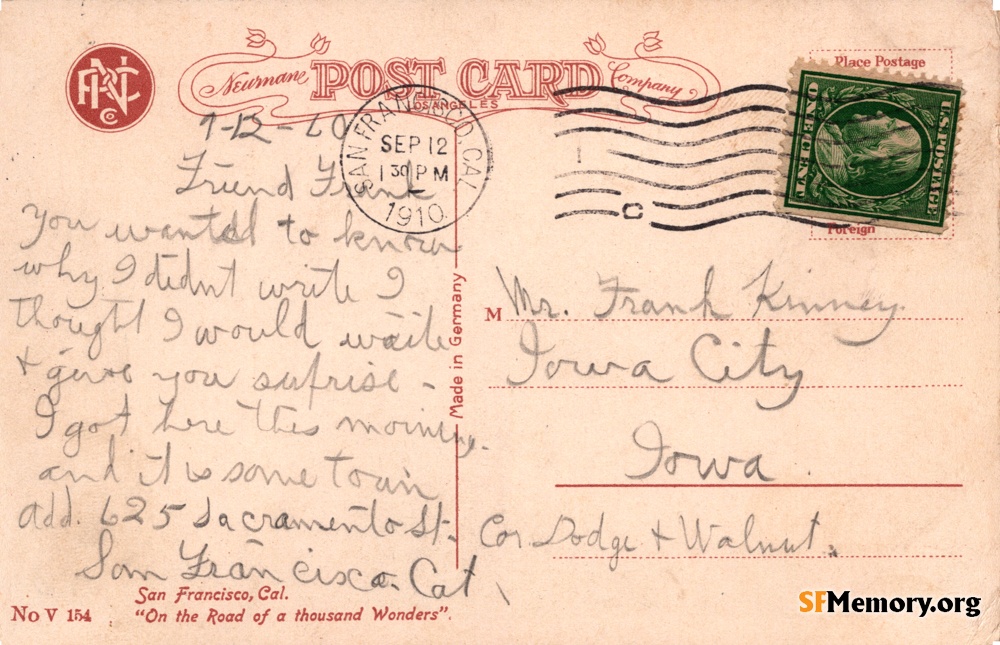 PNC Co
Newman
POST CARD
Company
LOS ANGELES
Place Postage
Foreign
SAN FRANCISCO, CAL.
SEP 12
1 30 P M
1910
C
U.S. POSTAGE
ONE CENT
9-12-10
Friend Frank
You wanted to know
why I didnt write I
thought I would waite
+ give you suprise -
I got here this morning.
and it is some town
add. 625 Sacramento St.
San Francisco. Cal
Made in Germany
M Mr. Frank Kinney
Iowa City
Iowa.
Cor Dodge + Walnut.
San Francisco, Cal.
No V 154 "On the Road of a thousand Wonders".
SFMemory.org